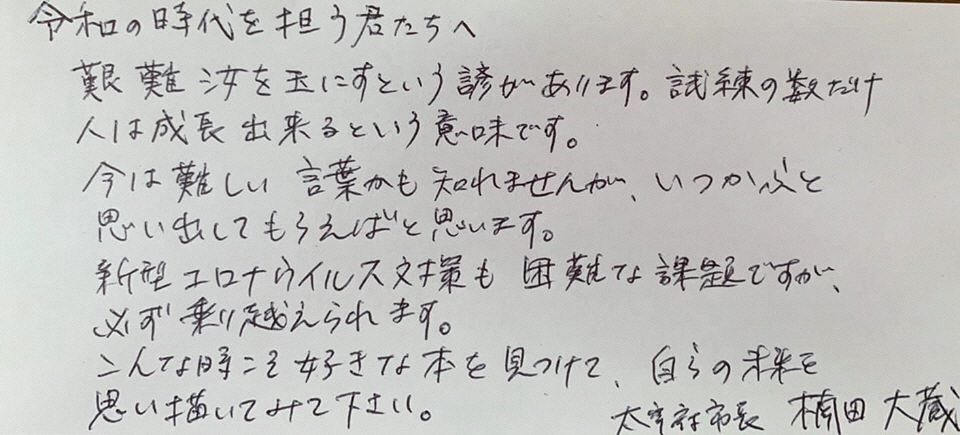 令和の時代を担う君たちへ
艱難汝を玉にすという諺があります。試練の数だけ
人は成長出来るという意味です。
今は難しい言葉かも知れませんが、いつかふと
思い出してもらえばと思います。
新型コロナウイルス対策も困難な課題ですが、
必ず乗り越えられます。
こんな時こそ好きな本を見つけて、自らの未来を
思い描いてみて下さい。
太宰府市長 楠田大蔵